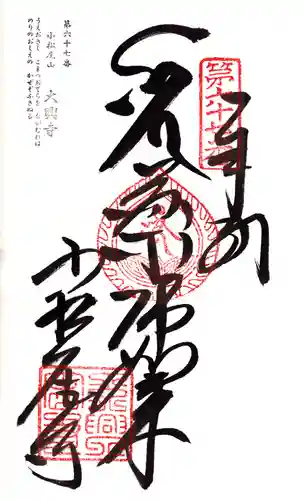 奉納
薬師如来
小松尾寺
第六十七番
第六十七番
小松尾山 大興寺
うえおきし こまつおてらを ながむれは
のりのおしえの かぜぞふきぬる